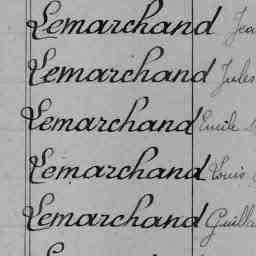 Lemarchand Jea
Lemarchand Jules
Lemarchand Emile
Lemarchand Louis
Lemarchand Guilla